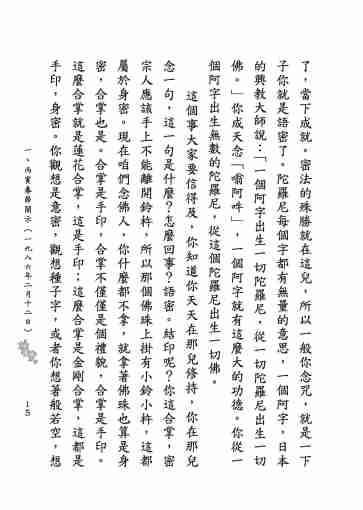 了，當下成就。密法的殊勝就在這兒，所以一般你念咒，就是一下
子你就是語密了。陀羅尼每個字都有無量的意思，一個阿字，日本
的興教大師說：「一個阿字出生一切陀羅尼，從一切陀羅尼出生一切
佛。」你成天念「嗡阿吽」，一個阿字就有這麼大的功德。你從一
個阿字出生無數的陀羅尼，從這個陀羅尼出生一切佛。
這個事大家要信得及，你知道你天天在那兒修持，你在那兒
念一句，這一句是什麼？怎麼回事？語密。結印呢？你這合掌，密
宗人應該手上不能離開鈴杵，所以那個佛珠上掛有小鈴小杵，這都
屬於身密。現在咱們念佛人，你什麼都不拿，就拿著佛珠也算是身
密，合掌也是。合掌是手印，合掌不僅僅是個禮貌，合掌是手印。
這麼合掌就是蓮花合掌，這是手印；這麼合掌是金剛合掌，這都是
手印，身密。你觀想是意密，觀想種子字，或者你想著般若空，想
一、丙寅春節開示（一九八六年二月十二日）
15